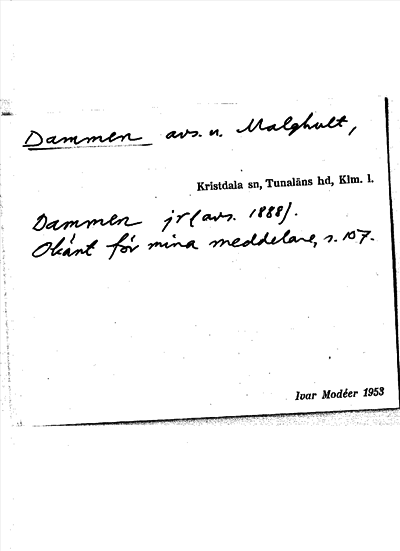 Dammen avs. u. Malghult,
Kristdala sn, Tunaläns hd, Klm. l.
Dammen jr (avs. 1888).
Okänt för mina meddelare, s. 107.
Ivar Modéer 1953